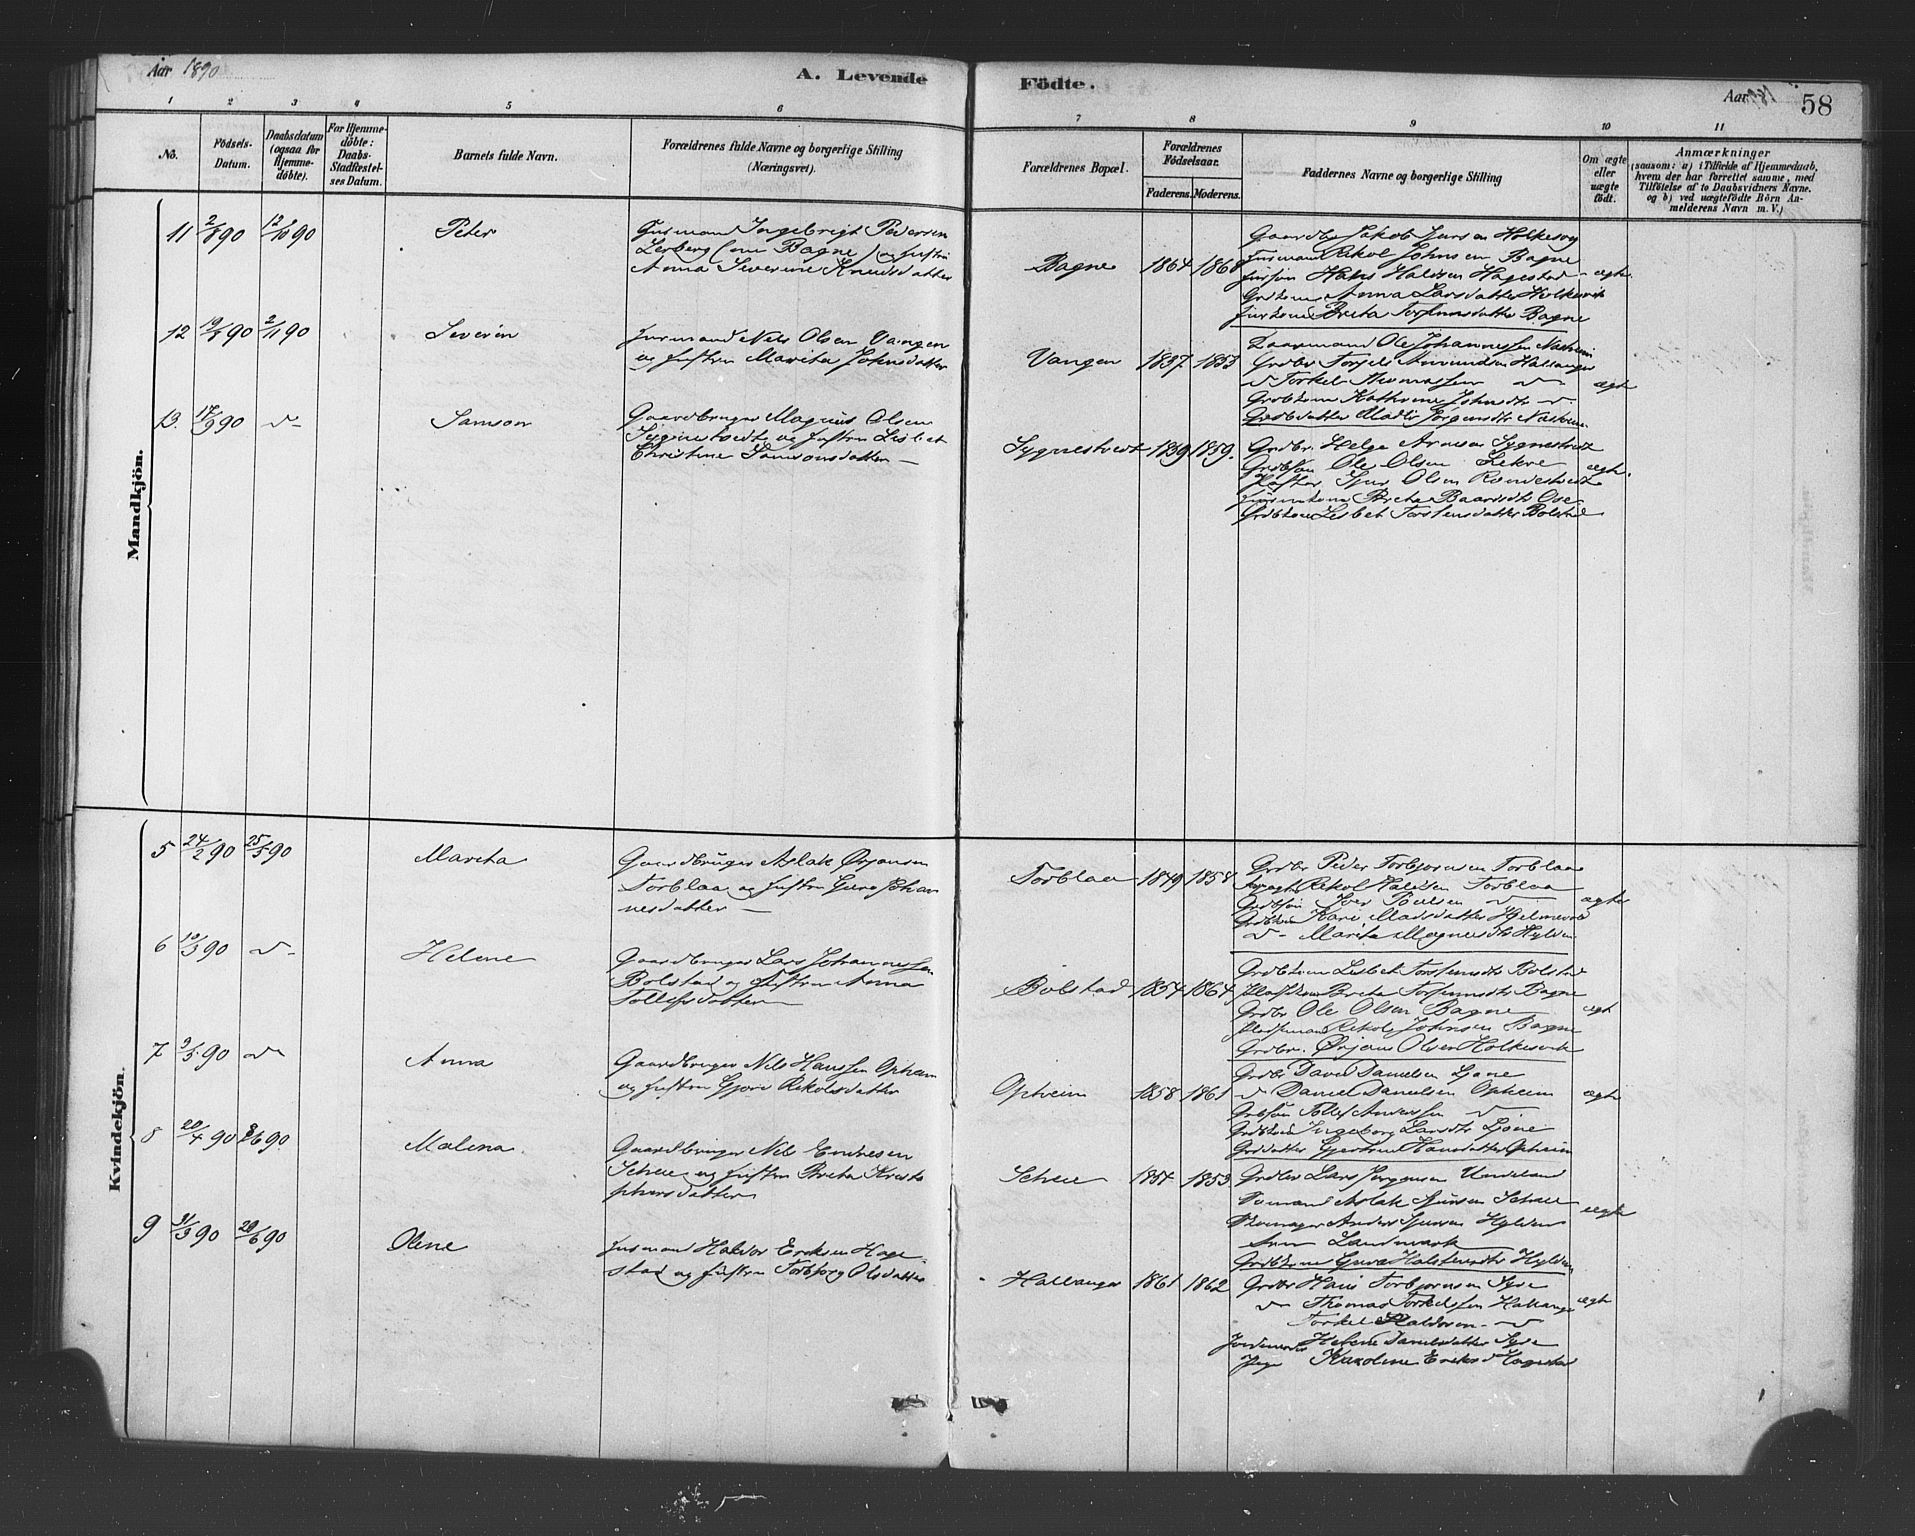 Aar 1890
A. Levende
Födte.
Aar 1890
58
1 2 3 4 5 6 7 8 9 10 11
No.
Födsels-
Datum.
Daabsdatum
(ogsaa for
Hjemme-
döbte).
For Hjemme-
döbte:
Daabs-
Stadfæstel-
ses Datum.
Barnets fulde Navn.
Forældrenes fulde Navne og borgerlige Stilling
(Næringsvei).
Forældrenes Bopæl.
Forældrenes
Födselsaar.
Faderens. Moderens.
Faddernes Navne og borgerlige Stilling
Om ægte
eller
uægte
födt.
Anmærkninger
(saasom: a) i Tilfælde af Hjemmedaab,
hvem der har forrettet samme, med
Tilföielse af to Daabsvidners Navne.
og b) ved uægtefödte Börn An-
melderens Navn m. V.)
Mandkjön.
11 2/8 90 12/10 90
Peter
Husmand Ingebrigt Pedersen
Lerberg (nu Bagne) og Hustru
Anna Severine Knudsdatter
Bagne 1864 1868
Gaardbr Jakob Larsen Holkesvig
Husmand Rikol Johnsen Bagne
Hans Haldsen Hagestad
Grdkone Anna Larsdatter Holkesvik
Huskone Breta Torfinnsdatter Bagne
ægte
12 19/9 90 2/11 90
Severin
Husmand Nels Olsen Vangen
og Hustru Marita Johnsdatter
Vangen 1837 1853
Ole Johannessen Naaheim
Grdbr Torgels Amundsen Hallanger
v Torkel Thomassen v
Grdbkone Kathrine Johnsdtr v.
Grdbdatter Madli Jørgensdtr Naaheim
ægte
13. 17/9 90 v
Samson
Gaardbruger Magnus Olsen
Sygnestvedt og Hustru Lisbet
Christine Samsonsdatter
Sygnestvedt 1839 1859.
Grdbr. Helge Arnesen Sygnestvedt
Grdbsøn Ole Olsen Lekve
Sjur Olsen Røndestvedt
Huusmkone Breta Baardsdtr Ose
Grdbkone Lisbet Torstensdatter Bolstad
ægte
Kvindekjön.
5 24/2 90 25/5 90
Marita
Gaardbruger Aslak Ørjansen
Torblaa og Hustru Guro Johan
nesdatter
Torblaa 1849 1854
Grdbr Peder Torbjørnsen Torblaa
Rikol Haldsen Torblaa
Grdbsøn Iver Poulsen v
Grdbkone Kari Madsdatter Hjelmevold
v Marita Magnesdtr Hylden
ægte
6 10/3 90 v
Helene
Gaardbruger Lars Johannessen
Bolstad og Hustru Anna
Tollefsdatter
Bolstad 1854 1864
Grdbkone Lisbet Torstensdtr Bolstad
Pladskone Breta Torfinnsdtr Bagne
Grdbr Ole Olsen Bagne
Pladsemand Rikol Johnsen Bagne
Grdbr. Ørjans Olsen Holkesvik
ægt
7 2/3 90 v
Anna
Gaardbruger Nels Hanssen Opheim
og Hustru Gjøri Rikolsdatter
Opheim 1858 1861
Grdbr David Danielsen Ljone
v Daniel Danielsen Opheim
Grdbsøn Tollef Anderssen v
Grdbkone Ingeborg Larsdtr Ljone
Grddatter Gjertrud Hansdatter Opheim
ægte
8 22/4 90 8/6 90
Malena
Gaardbruger Nels Endresen
Scheie og Hustru Breta Kristo
phersdatter
Scheie 1854 1853
Grdbr Lars Jørgensen Undeland
Aslak Sjursen Scheie
Skomager Anders Sjursen Hylden
Landmark
Grdbkone Guro Halstensdtr Hylden
ægte
9 31/3 90 29/6 90
Olene
Husmand Haldor Eriksen Hage
stad og Hustru Torbjørg Olsdatter
Hallanger 1861 1862
Grdbr Hans Torbjørnsen Syse
v Thomas Torkelssen Hallanger
Torkel Haldorsen v
Jordemoder Helene Danielsdatter Syse
Pige Karoline Eriksd Hagestad
ægt